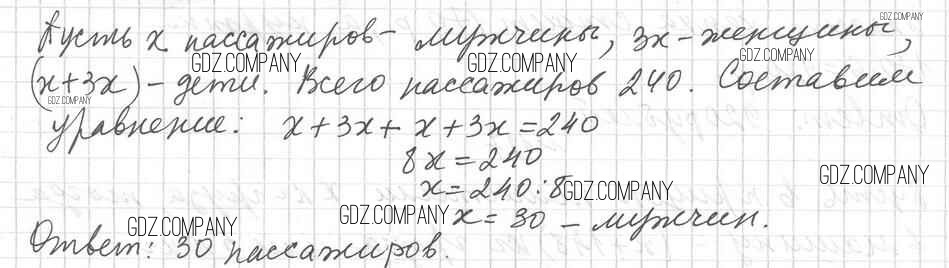 GDZ.COMPANY
Пусть x пассажиров - мужчины, 3x - женщины,
GDZ.COMPANY GDZ.COMPANY GDZ.COMPANY
(x+3x) - дети. Всего пассажиров 240. Составим
GDZ.COMPANY
уравнение: x+3x+x+3x=240
8x=240
x=240:8
GDZ.COMPANY GDZ.COMPANY
x=30 - мужчин.
GDZ.COMPANY GDZ.COMPANY
Ответ: 30 пассажиров.